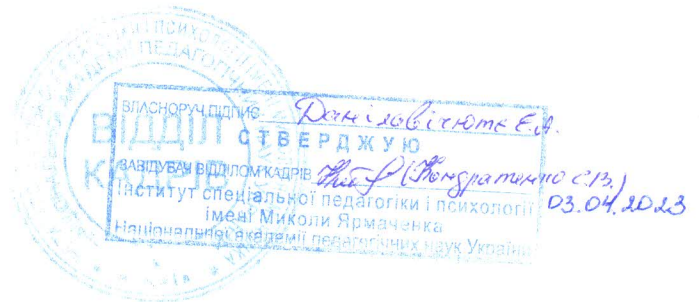 ВІДДІЛ
КАДРІВ
ВЛАСНОРУЧ. ПІДПИС Данілавічюте Е.А.
СТВЕРДЖУЮ
ЗАВІДУВАЧ ВІДДІЛОМ КАДРІВ (Кондратенко С.В.)
Інститут спеціальної педагогіки і психології 03.04.2023
імені Миколи Ярмаченка
Національної академії педагогічних наук України